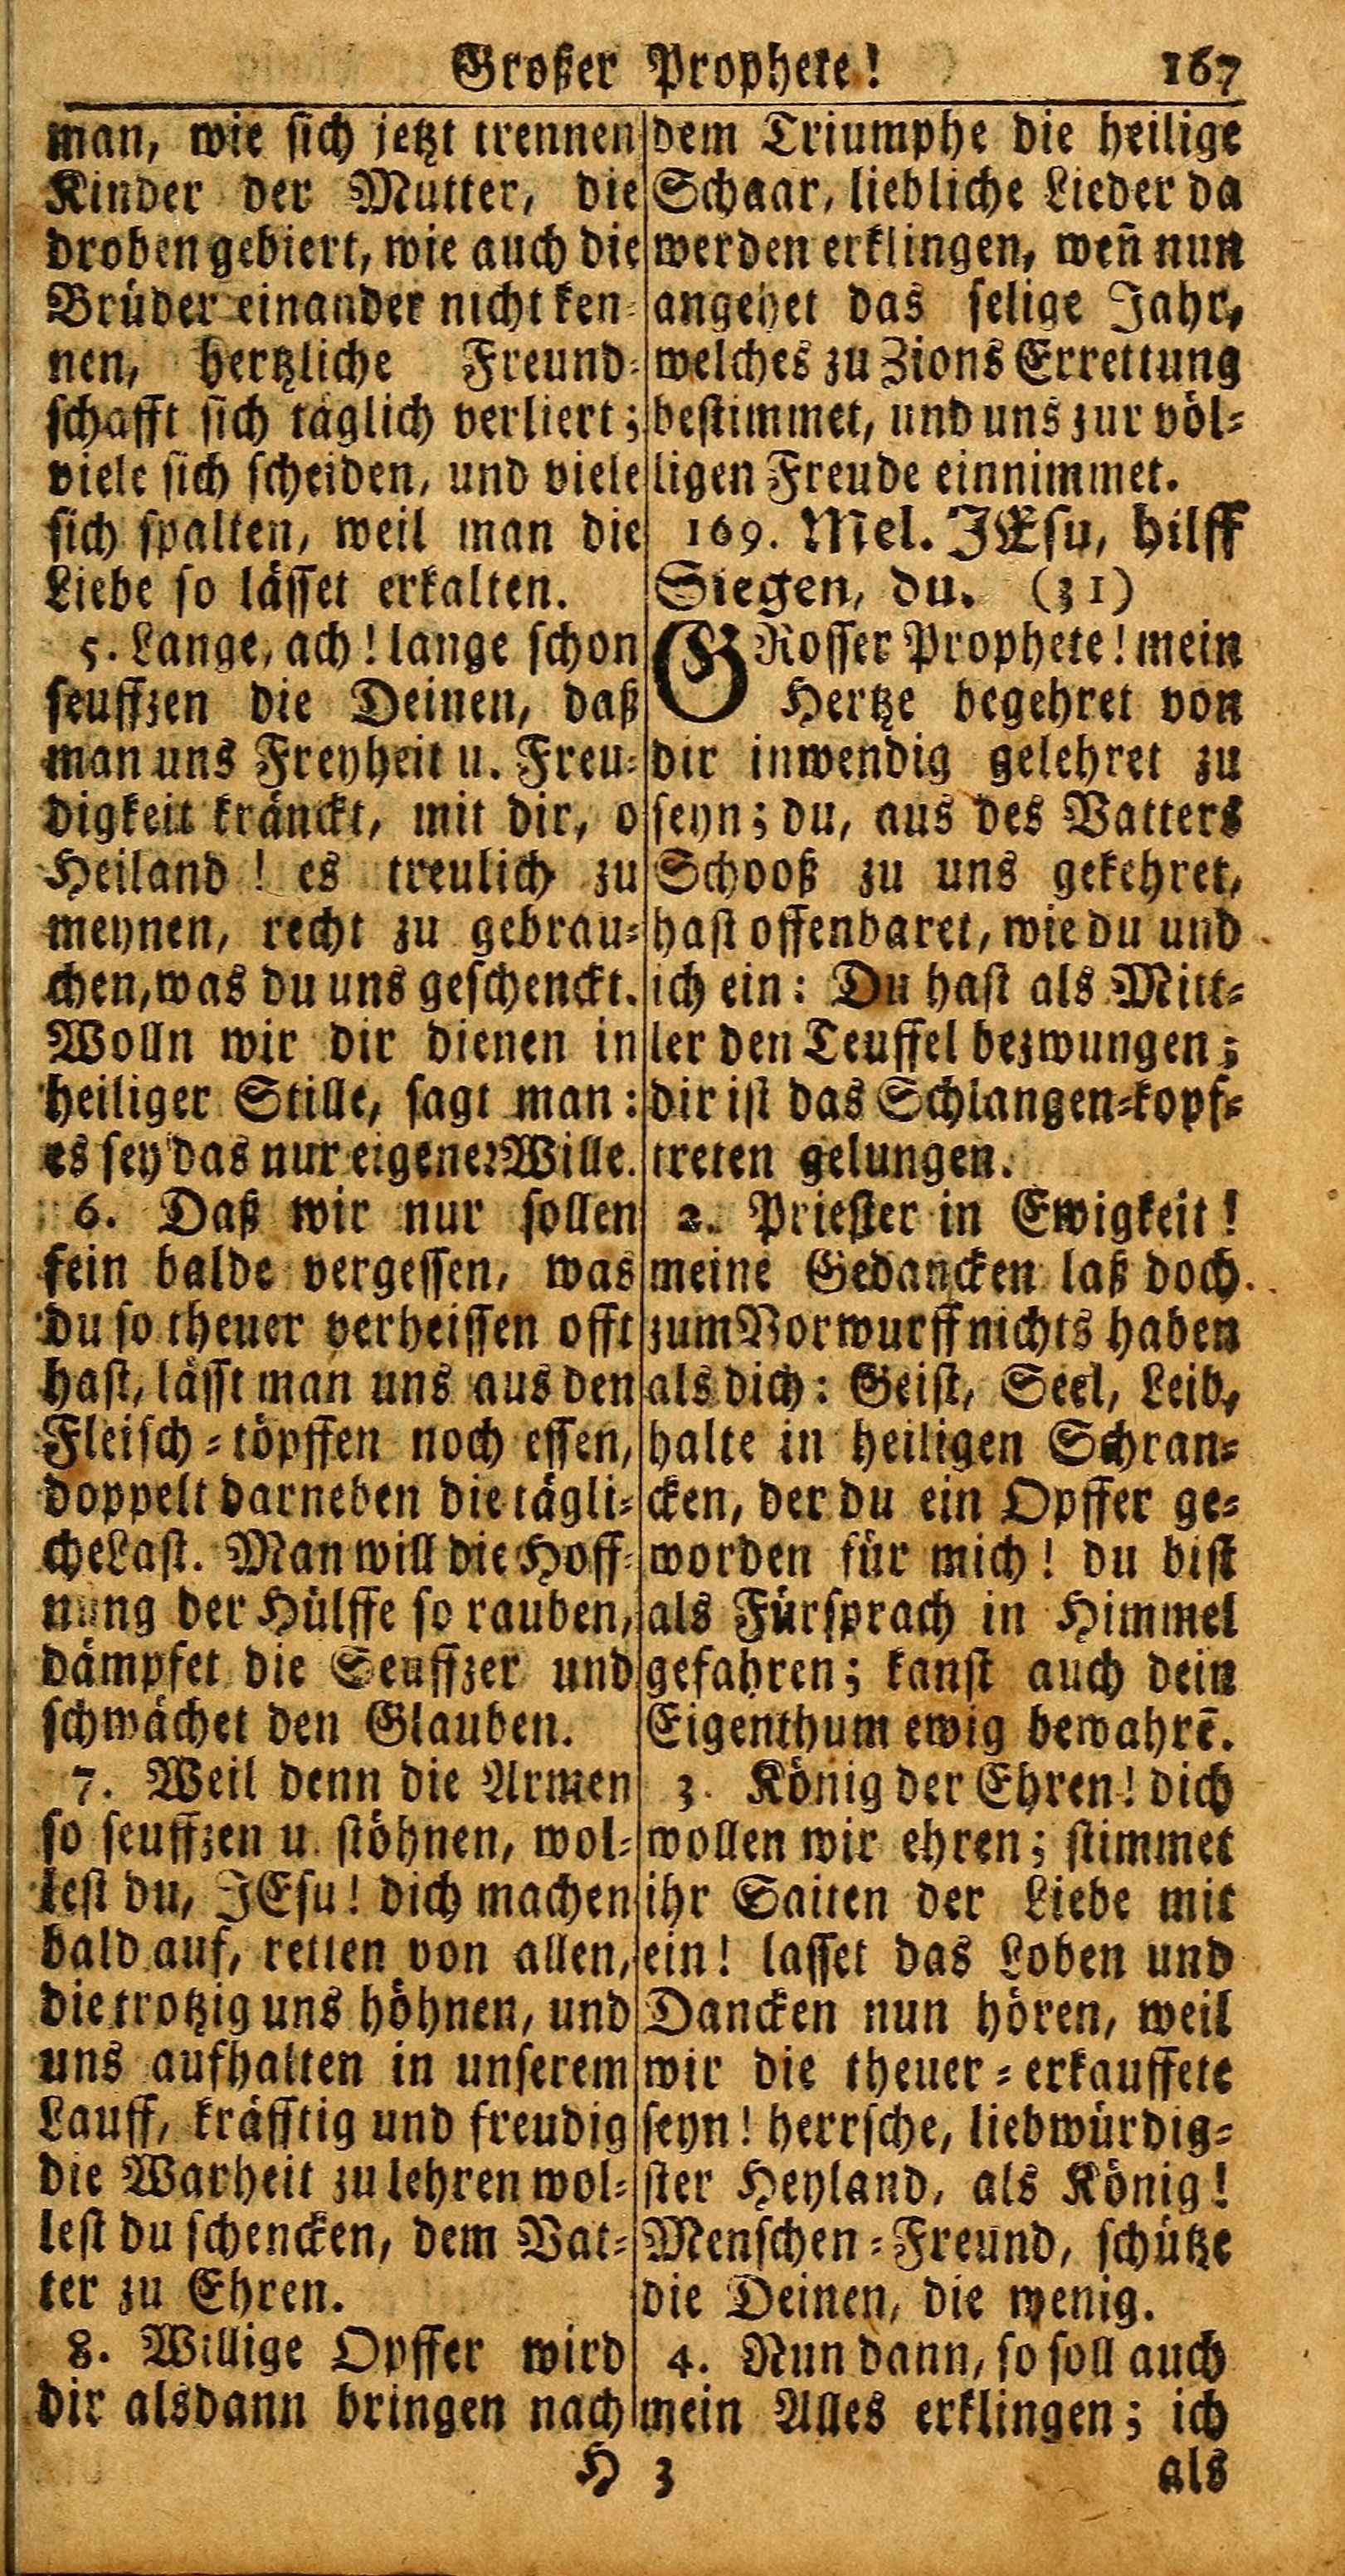 Großer Prophete!
167
man, wie sich jetzt trennen
Kinder der Mutter, die
droben gebiert, wie auch die
Brüder einander nicht ken-
nen, hertzliche Freund-
schafft sich täglich verliert;
viele sich scheiden, und viele
sich spalten, weil man die
Liebe so lässet erkalten.
5. Lange, ach! lange schon
seuffzen die Deinen, daß
man uns Freyheit u. Freu-
digkeit kränckt, mit dir, o
Heiland! es treulich zu
meynen, recht zu gebrau-
chen, was du uns geschenckt.
Wolln wir dir dienen in
heiliger Stille, sagt man:
es sey das nur eigener Wille.
6. Daß wir nur sollen
fein balde vergessen, was
du so theuer verheissen offt
hast, lässt man uns aus den
Fleisch-töpffen noch essen,
doppelt darneben die tägli-
che Last. Man will die Hoff-
nung der Hülffe so rauben,
dämpfet die Seuffzer und
schwächet den Glauben.
7. Weil denn die Armen
so seuffzen u. stöhnen, wol-
lest du, JEsu! dich machen
bald auf, retten von allen,
die trotzig uns höhnen, und
uns aufhalten in unserem
Lauff, kräfftig und freudig
die Warheit zu lehren wol-
lest du schencken, dem Vat-
ter zu Ehren.
8. Willige Opffer wird
dir alsdann bringen nach
dem Triumphe die heilige
Schaar, liebliche Lieder da
werden erklingen, weñ nun
angehet das selige Jahr,
welches zu Zions Errettung
bestimmet, und uns zur völ-
ligen Freude einnimmet.
169. Mel. JEsu, hilff
Siegen, du. (31)
GRosser Prophete! mein
Hertze begehret von
dir inwendig gelehret zu
seyn; du, aus des Vatters
Schooß zu uns gekehret,
hast offenbaret, wie du und
ich ein: Du hast als Mitt-
ler den Teuffel bezwungen;
dir ist das Schlangen-kopf-
treten gelungen.
2. Priester in Ewigkeit!
meine Gedancken laß doch
zum Vorwurff nichts haben
als dich: Geist, Seel, Leib,
halte in heiligen Schran-
cken, der du ein Opffer ge-
worden für mich! du bist
als Fürsprach in Himmel
gefahren; kanst auch dein
Eigenthum ewig bewahrē.
3. König der Ehren! dich
wollen wir ehren; stimmet
ihr Saiten der Liebe mit
ein! lasset das Loben und
Dancken nun hören, weil
wir die theuer-erkauffete
seyn! herrsche, liebwürdig-
ster Heyland, als König!
Menschen-Freund, schütze
die Deinen, die wenig.
4. Nun dann, so soll auch
mein Alles erklingen; ich
H 3
als